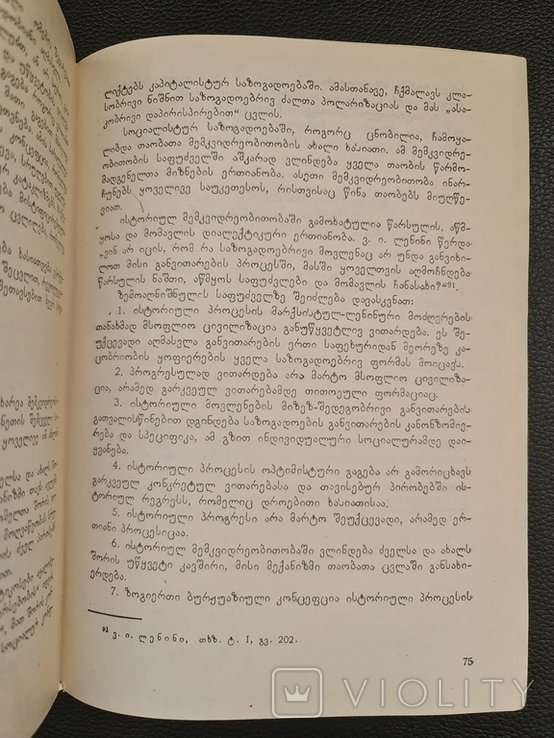 ლიქტებს კაპიტალისტურ საზოგადოებაში. ამასთანავე, ჩქმალავს კლა-
სობრივი ნიშნით საზოგადოებრივ ძალთა პოლარიზაციას და მას „ასა-
კობრივი დაპირისპირებით“ ცვლის.
სოციალისტურ საზოგადოებაში, როგორც ცნობილია, ჩამოყა-
ლიბდა თაობათა მემკვიდრეობითობის ახალი ხასიათი. ამ მემკვიდრე-
ობითობის საფუძველზე აშკარად ვლინდება ყველა თაობის წარმო-
მადგენელთა მიზნების ერთიანობა. ასეთი მემკვიდრეობითობა ინარ-
ჩუნებს ყოველივე საუკეთესოს, რისთვისაც წინა თაობებს მიუღწე-
ვიათ.
ისტორიულ მემკვიდრეობითობაში გამოხატულია წარსულის, აწმ-
ყოსა და მომავლის დიალექტიკური ერთიანობა. ვ. ი. ლენინი წერდა-
„ვინ არ იცის, რომ რა საზოგადოებრივი მოვლენაც არ უნდა განვიხი-
ლოთ მისი განვითარების პროცესში, მასში ყოველთვის აღმოჩნდება
წარსულის ნაშთი, აწმყოს საფუძვლები და მომავლის ჩანასახი?“⁹¹.
ზემოაღნიშნულის საფუძველზე შეიძლება დავასკვნათ:
1. ისტორიული პროცესის მარქსისტულ-ლენინური მოძღვრების
თანახმად მსოფლიო ცივილიზაცია განუწყვეტლივ ვითარდება. ეს შე-
უქცევადი აღმასვლა განვითარების ერთი საფეხურიდან მეორეზე კა-
ცობრიობის ყოფიერების ყველა საზოგადოებრივ ფორმას მოიცავს.
2. პროგრესულად ვითარდება არა მარტო მსოფლიო ცივილიზა-
ცია, არამედ გარკვეულ ვითარებამდე თითოეული ფორმაციაც.
3. ისტორიული მოვლენების მიზეზ-შედეგობრივი განვითარების
გათვალისწინებით დგინდება საზოგადოების განვითარების კანონზომიე-
რება და სპეციფიკა, ამ გზით ინდივიდუალური სოციალურამდე დაი-
ყვანება.
4. ისტორიული პროცესის ოპტიმისტური გაგება არ გამორიცხავს
გარკვეულ კონკრეტულ ვითარებასა და თავისებურ პირობებში ის-
ტორიულ რეგრესს, რომელიც დროებითი ხასიათისაა.
5. ისტორიული პროგრესი არა მარტო შეუქცევადი, არამედ ერ-
თიანი პროცესიცაა.
6. ისტორიულ მემკვიდრეობითობაში ვლინდება ძველსა და ახალს
შორის უწყვეტი კავშირი, მისი მექანიზმი თაობათა ცვლაში განსახი-
ერდება.
7. ზოგიერთი ბურჟუაზიული კონცეფცია ისტორიული პროცესის
⁹¹ ვ. ი. ლენინი, თხზ. ტ. I, გვ. 202.
75
VIOLITY